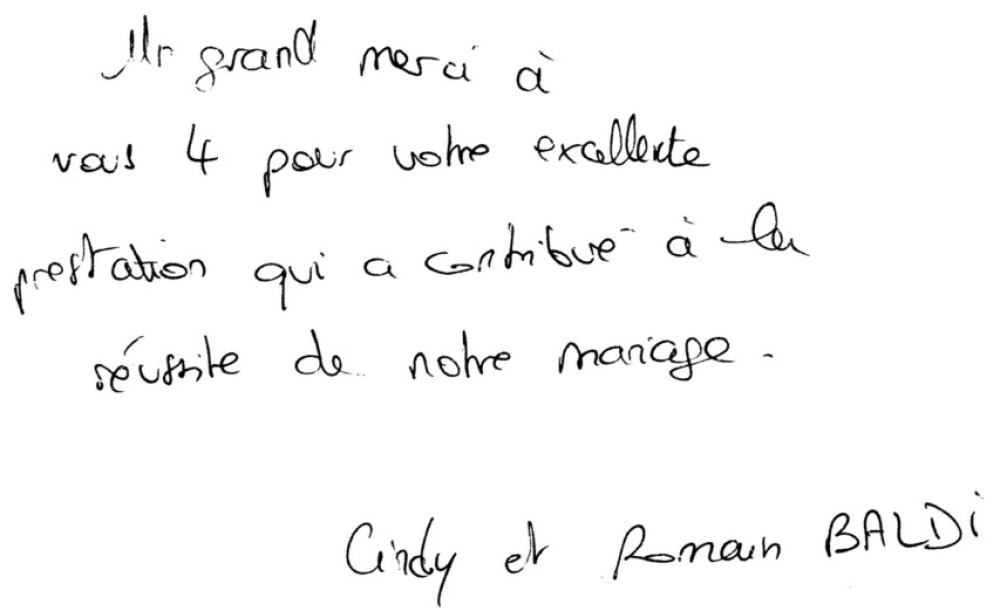 Un grand merci à
vous 4 pour votre excellente
prestation qui a contribué à la
réussite de notre mariage.
Cindy et Romain BALDi